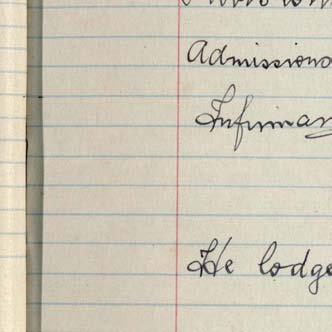 Admissions
Infirmary
He lodge